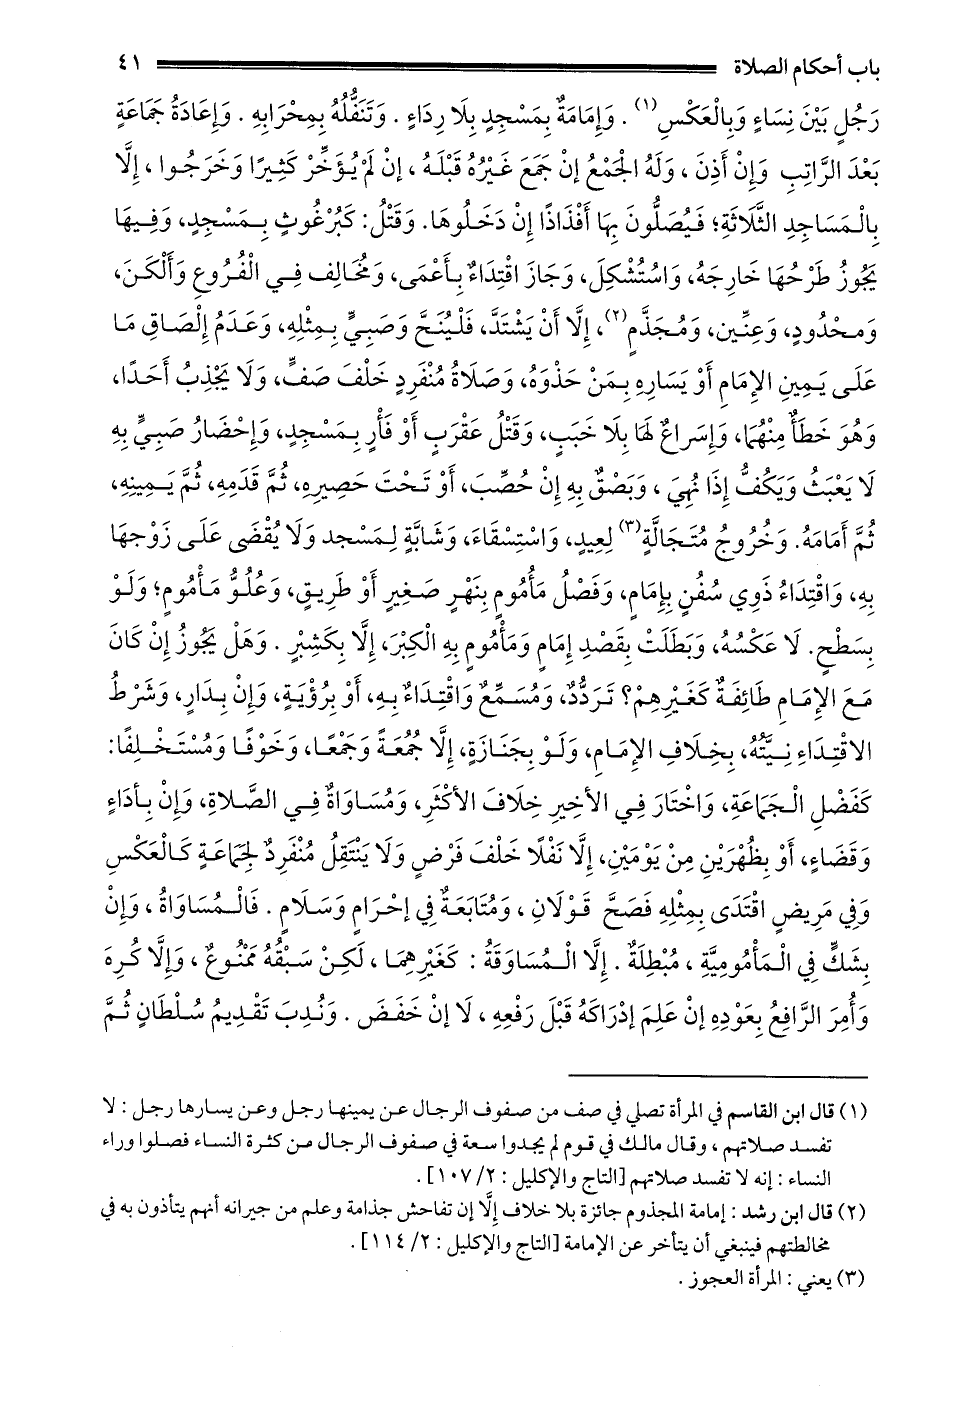 باب أحكام الصلاة ٤١
رَجُلٍ بَيْنَ نِسَاءٍ وَبِالْعَكْسِ(١) . وَإِمَامَةٌ بِمَسْجِدٍ بِلَا رِدَاءٍ . وَتَنَفُّلُهُ بِمِحْرَابِهِ . وَإِعَادَةُ جَمَاعَةٍ
بَعْدَ الرَّاتِبِ وَإِنْ أَذِنَ ، وَلَهُ الْجَمْعُ إِنْ جَمَعَ غَيْرُهُ قَبْلَهُ ، إِنْ لَمْ يُؤَخِّرْ كَثِيرًا وَخَرَجُوا ، إِلَّا
بِالْمَسَاجِدِ الثَّلَاثَةِ؛ فَيُصَلُّونَ بِهَا أَفْذَاذًا إِنْ دَخَلُوهَا. وَقَتْلُ: كَبُرْغُوثٍ بِمَسْجِدٍ، وَفِيهَا
يَجُوزُ طَرْحُهَا خَارِجَهُ، وَاسْتُشْكِلَ، وَجَازَ اقْتِدَاءٌ بِأَعْمَى، وَمُخَالِفٍ فِي الْفُرُوعِ وَأَلْكَنَ،
وَمَحْدُودٍ، وَعِنِّينٍ، وَمُجَذَّمٍ(٢)، إِلَّا أَنْ يَشْتَدَّ، فَلْيُنَحَّ وَصَبِيٍّ بِمِثْلِهِ، وَعَدَمُ إِلْصَاقِ مَا
عَلَى يَمِينِ الإِمَامِ أَوْ يَسَارِهِ بِمَنْ حَذْوَهُ، وَصَلَاةُ مُنْفَرِدٍ خَلْفَ صَفٍّ، وَلَا يَجْذِبُ أَحَدًا،
وَهُوَ خَطَأٌ مِنْهُمَا، وَإِسْرَاعٌ لَهَا بِلَا خَبَبٍ، وَقَتْلُ عَقْرَبٍ أَوْ فَأْرٍ بِمَسْجِدٍ، وَإِحْضَارُ صَبِيٍّ بِهِ
لَا يَعْبَثُ وَيَكُفُّ إِذَا نُهِيَ ، وَبَصْقٌ بِهِ إِنْ حُصِّبَ، أَوْ تَحْتَ حَصِيرِهِ، ثُمَّ قَدَمِهِ، ثُمَّ يَمِينِهِ،
ثُمَّ أَمَامَهُ. وَخُرُوجُ مُتَجَالَّةٍ(٣) لِعِيدٍ، وَاسْتِسْقَاءَ، وَشَابَّةٍ لِمَسْجِد وَلَا يُقْضَى عَلَى زَوْجِهَا
بِهِ، وَاقْتِدَاءُ ذَوِي سُفُنٍ بِإِمَامٍ، وَفَصْلُ مَأْمُومٍ بِنَهْرٍ صَغِيرٍ أَوْ طَرِيقٍ، وَعُلُوُّ مَأْمُومٍ؛ وَلَوْ
بِسَطْحٍ. لَا عَكْسُهُ، وَبَطَلَتْ بِقَصْدِ إِمَامٍ وَمَأْمُومٍ بِهِ الْكِبْرَ، إِلَّا بِكَشِبْرٍ . وَهَلْ يَجُوزُ إِنْ كَانَ
مَعَ الإِمَامِ طَائِفَةٌ كَغَيْرِهِمْ؟ تَرَدُّدٌ، وَمُسَمِّعٌ وَاقْتِدَاءٌ بِهِ، أَوْ بِرُؤْيَةٍ، وَإِنْ بِدَارٍ، وَشَرْطُ
الاقْتِدَاءِ نِيَّتُهُ، بِخِلَافِ الإِمَامِ، وَلَوْ بِجَنَازَةٍ، إِلَّا جُمُعَةً وَجَمْعًا، وَخَوْفًا وَمُسْتَخْلِفًا:
كَفَضْلِ الْجَمَاعَةِ، وَاخْتَارَ فِي الأَخِيرِ خِلَافَ الأَكْثَرِ، وَمُسَاوَاةٌ فِي الصَّلَاةِ، وَإِنْ بِأَدَاءٍ
وَقَضَاءٍ، أَوْ بِظُهْرَيْنِ مِنْ يَوْمَيْنِ، إِلَّا نَفْلًا خَلْفَ فَرْضٍ وَلَا يَنْتَقِلُ مُنْفَرِدٌ لِجَمَاعَةٍ كَالْعَكْسِ
وَفِي مَرِيضٍ اقْتَدَى بِمِثْلِهِ فَصَحَّ قَوْلَانِ ، وَمُتَابَعَةٌ فِي إِحْرَامٍ وَسَلَامٍ . فَالْمُسَاوَاةُ ، وَإِنْ
بِشَكٍّ فِي الْمَأْمُومِيَّةِ ، مُبْطِلَةٌ . إِلَّا الْمُسَاوَقَةُ : كَغَيْرِهِمَا ، لَكِنْ سَبْقُهُ مَمْنُوعٌ ، وَإِلَّا كُرِهَ
وَأُمِرَ الرَّافِعُ بِعَوْدِهِ إِنْ عَلِمَ إِدْرَاكَهُ قَبْلَ رَفْعِهِ ، لَا إِنْ خَفَضَ . وَنُدِبَ تَقْدِيمُ سُلْطَانٍ ثُمَّ
(١) قال ابن القاسم في المرأة تصلي في صف من صفوف الرجال عن يمينها رجل وعن يسارها رجل : لا
تفسد صلاتهم ، وقال مالك في قوم لم يجدوا سعة في صفوف الرجال من كثرة النساء فصلوا وراء
النساء : إنه لا تفسد صلاتهم [التاج والإكليل : ٢/ ١٠٧] .
(٢) قال ابن رشد : إمامة المجذوم جائزة بلا خلاف إلَّا إن تفاحش جذامة وعلم من جيرانه أنهم يتأذون به في
مخالطتهم فينبغي أن يتأخر عن الإمامة [التاج والإكليل : ٢/ ١١٤] .
(٣) يعني : المرأة العجوز .